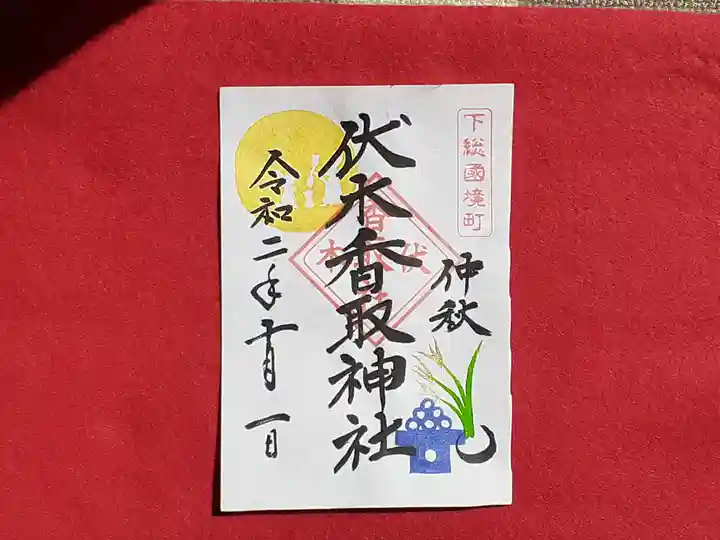 下総國境町
仲秋
伏木香取神社
令和二年十月一日